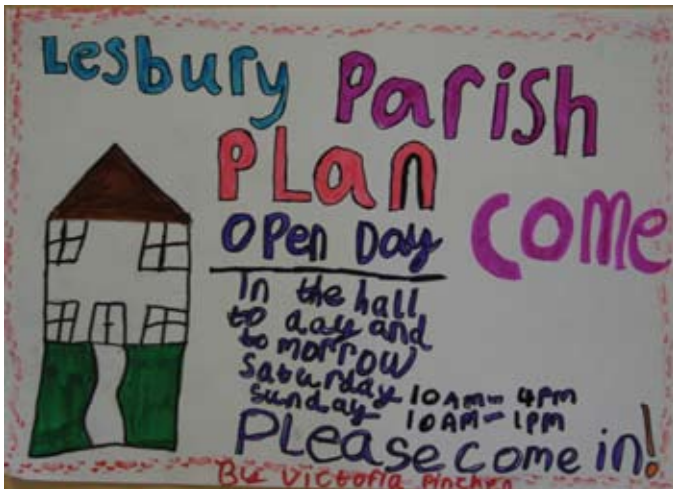 Lesbury Parish
PLan
COME
OPen Day
In the hall
to day and
tomorrow
Saturday 10AM - 4PM
Sunday 10AM - 1PM
PLease come in!
By Victoria Pinchen